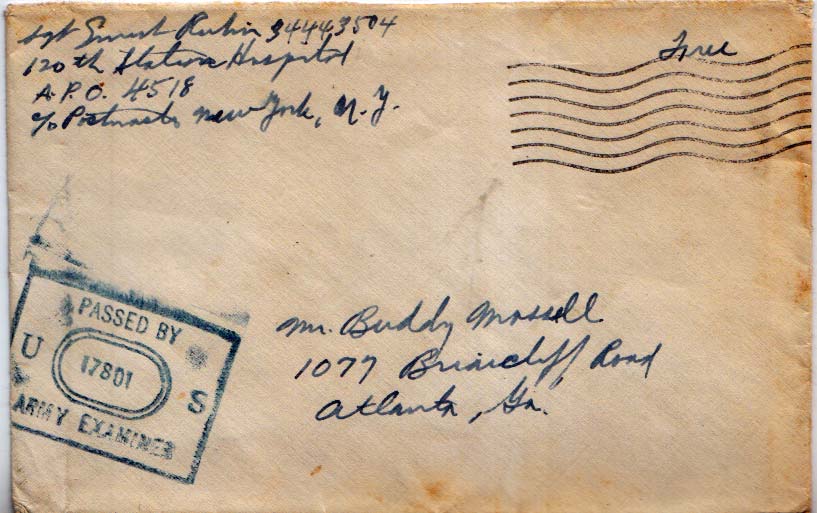 Sgt Ernest Rubin 34443504
120th Station Hospital
A.P.O. 4518
c/o Postmaster New York, N.Y.
Free
PASSED BY
U 17801 S
ARMY EXAMINER
Mr. Buddy Massell
1077 Briarcliff Road
Atlanta, Ga.